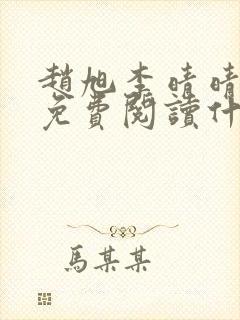 趙旭李晴晴
免費閱讀什
馬某某